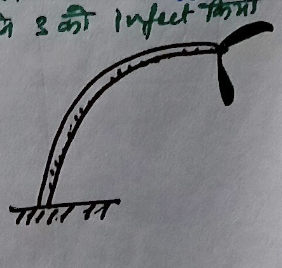 3 को infect किया